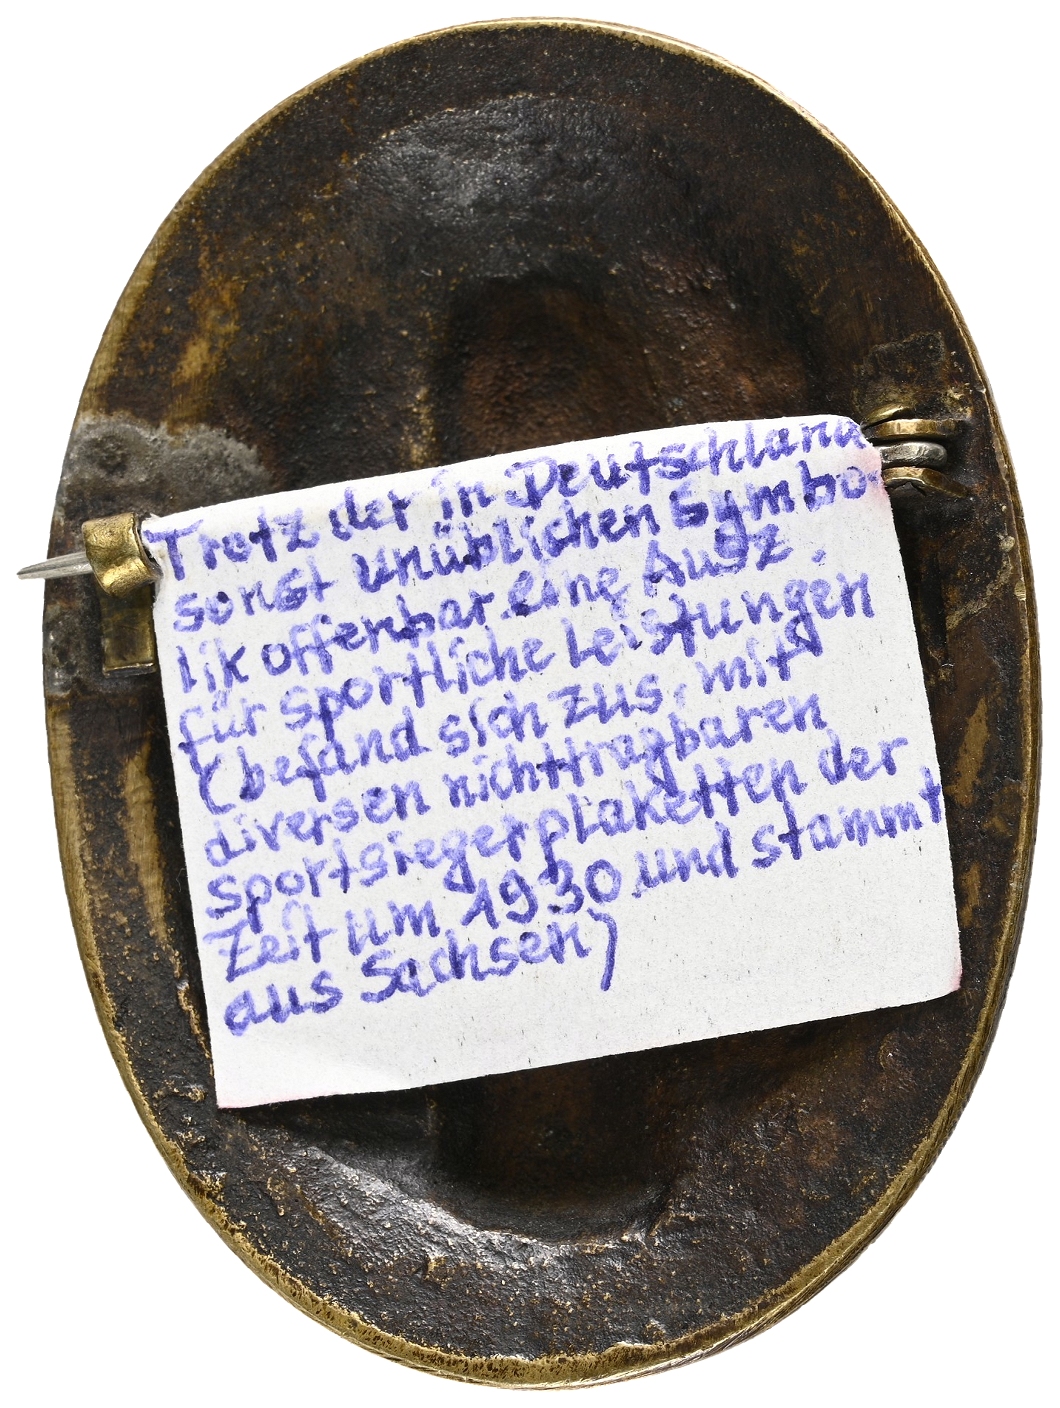 Trotz der in Deutschland
sonst unüblichen Symbo-
lik offenbar eine Ausz.
für sportliche Leistungen
(befand sich zus. mit
diversen nichttragbaren
Sportsiegerplaketten der
Zeit um 1930 und stammt
aus Sachsen)